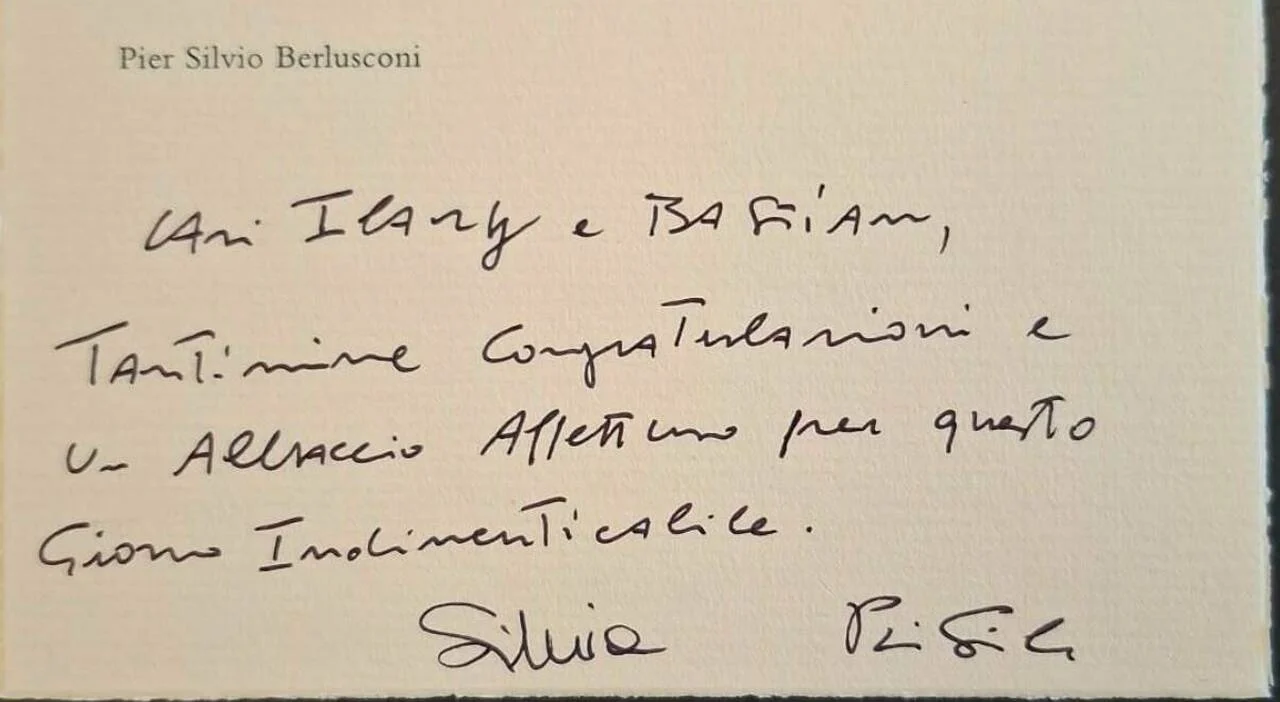 Pier Silvio Berlusconi
Cari Ilary e Bastian,
Tantissime congratulazioni e
un abbraccio affettuoso per questo
giorno indimenticabile.
Silvia Pier Silvio